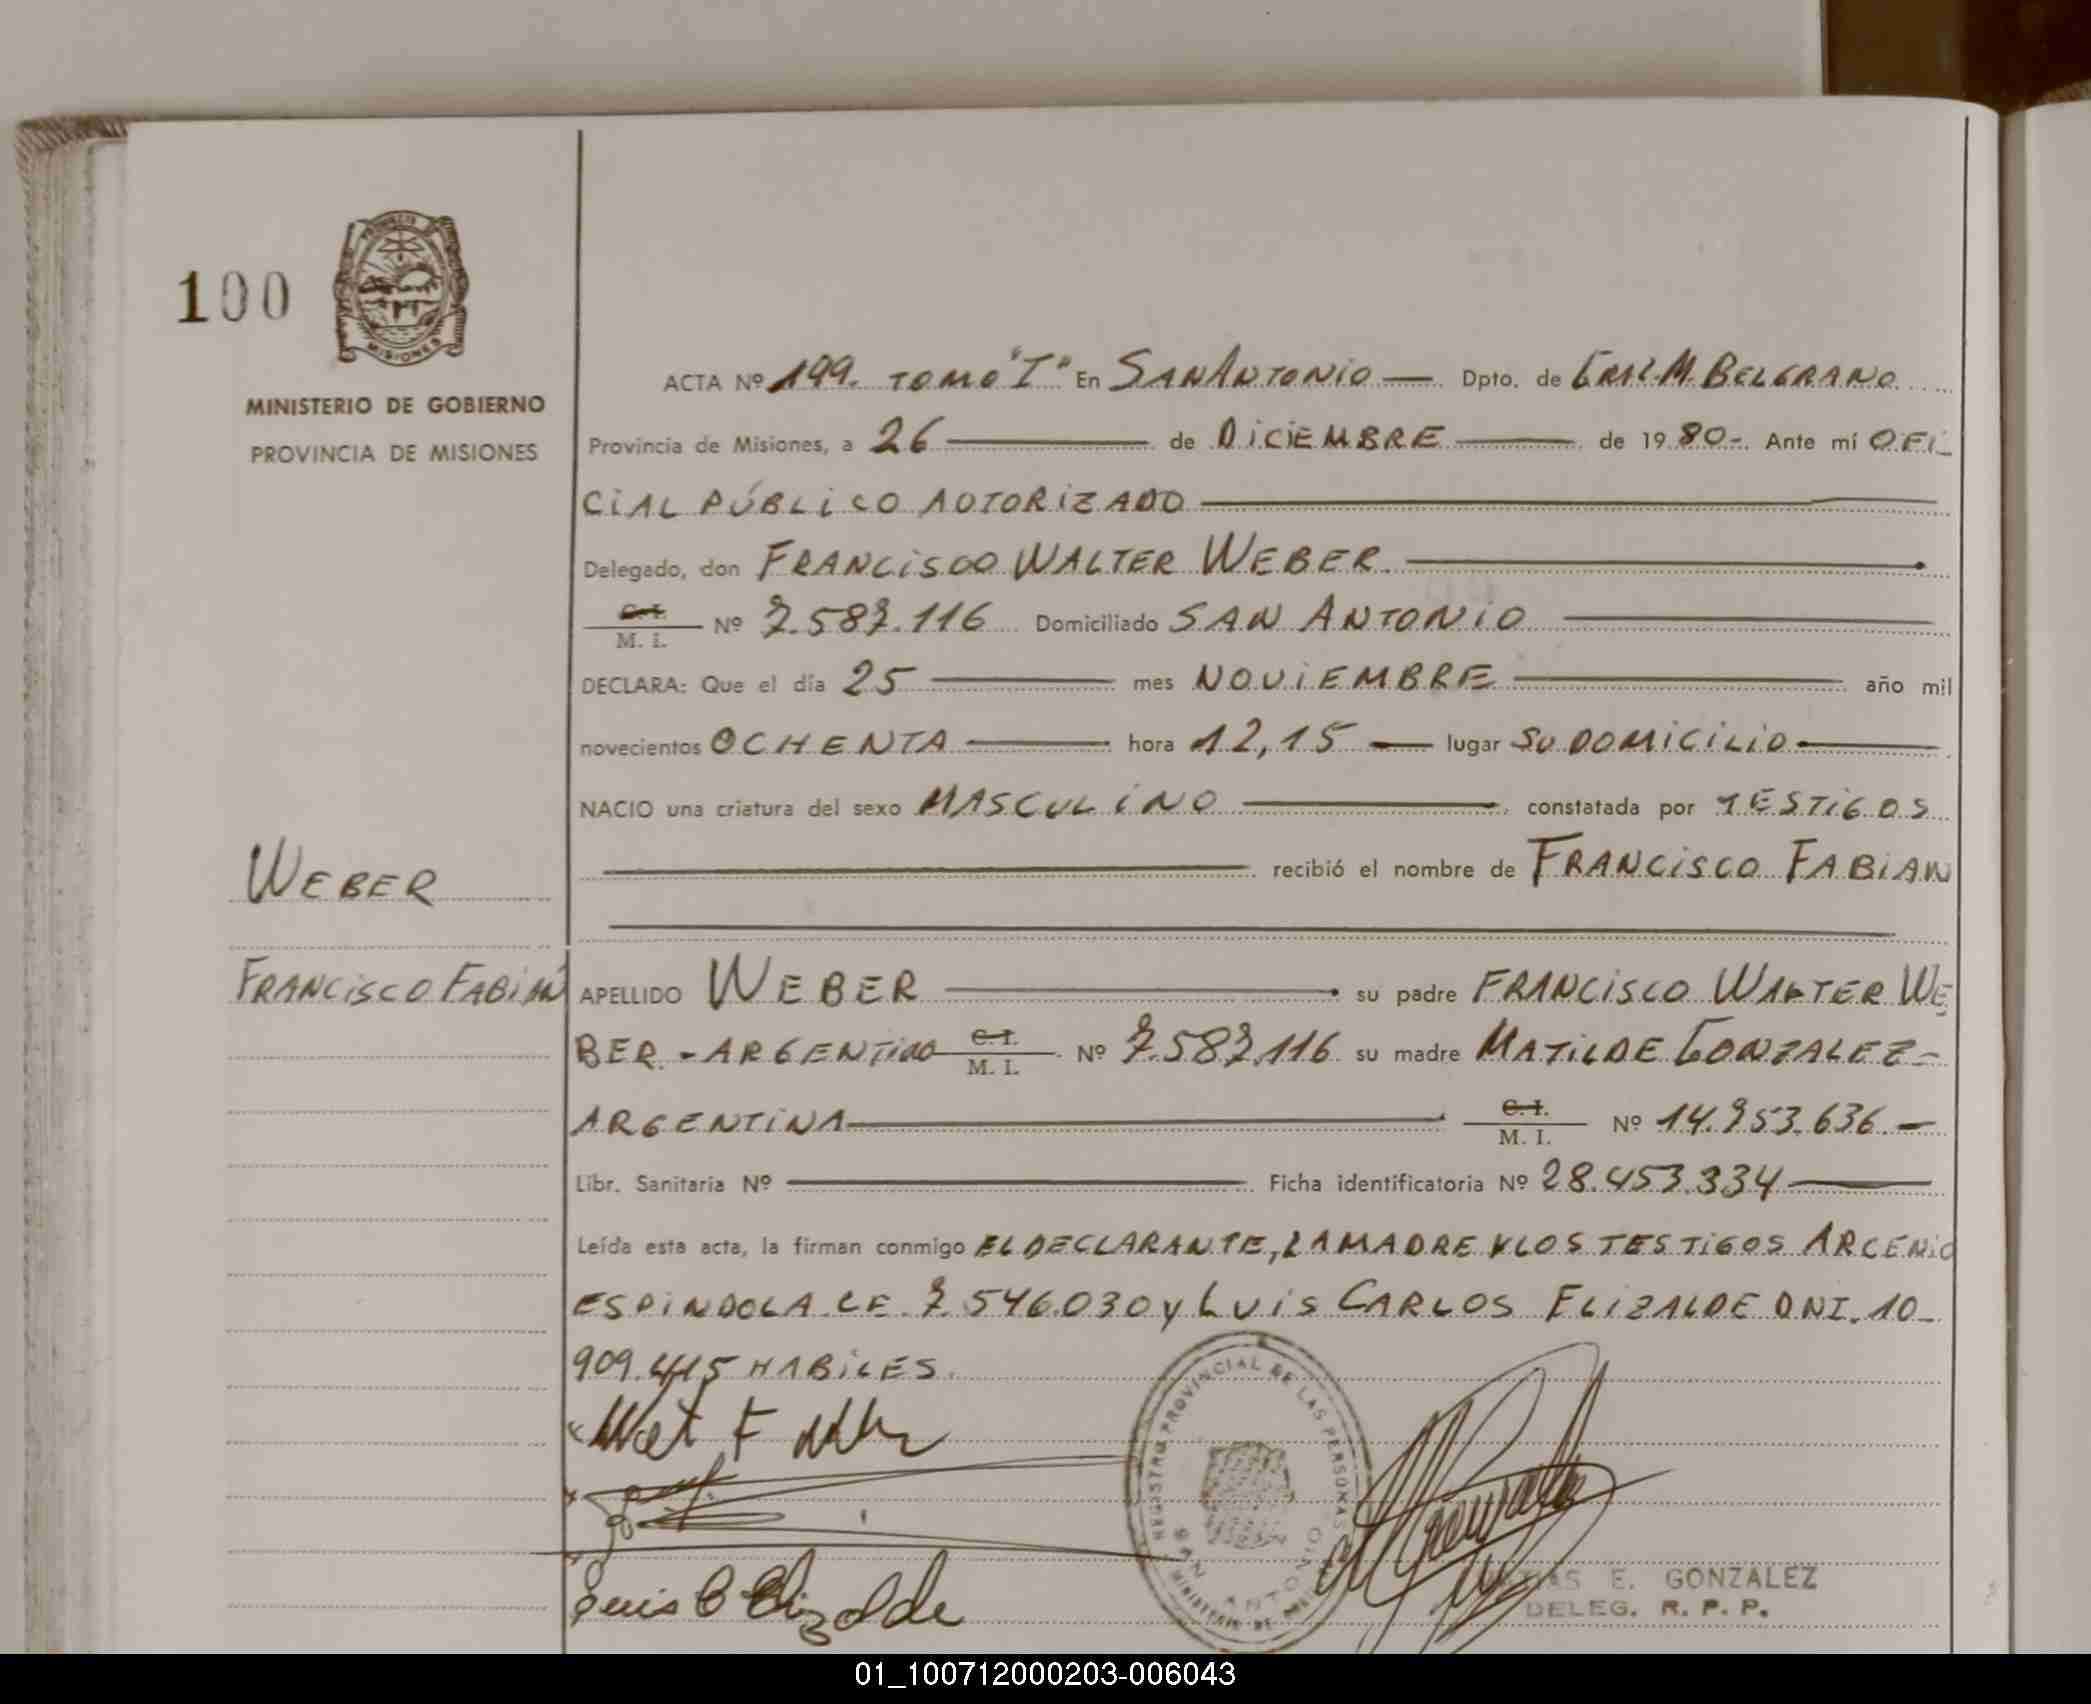 100
MISIONES
MINISTERIO DE GOBIERNO
PROVINCIA DE MISIONES
ACTA Nº 199. TOMO "I" En SAN ANTONIO — Dpto. de GRAL. M. BELGRANO
Provincia de Misiones, a 26 — de DICIEMBRE — de 1980-. Ante mí OFI
CIAL PÚBLICO AUTORIZADO —
Delegado, don FRANCISCO WALTER WEBER. —
C. I. / M. I. Nº 7.587.116 Domiciliado SAN ANTONIO —
DECLARA: Que el día 25 — mes NOVIEMBRE — año mil
novecientos OCHENTA — hora 12,15 — lugar SU DOMICILIO —
NACIO una criatura del sexo MASCULINO — constatada por TESTIGOS
— recibió el nombre de FRANCISCO FABIAN
WEBER
FRANCISCO FABIÁN
APELLIDO WEBER — su padre FRANCISCO WALTER WE
BER - ARGENTINO C. I. / M. I. Nº 7.587.116 su madre MATILDE GONZALEZ -
ARGENTINA — C. I. / M. I. Nº 14.953.636. —
Libr. Sanitaria Nº — Ficha identificatoria Nº 28.453.334 —
Leída esta acta, la firman conmigo EL DECLARANTE, LA MADRE Y LOS TESTIGOS ARCENIO
ESPINDOLA LE. 7.546.030 y LUIS CARLOS ELIZALDE DNI. 10_
909.415 HABILES.
Luis C Elizalde
REGISTRO PROVINCIAL DE LAS PERSONAS
SAN ANTONIO
MINISTERIO DE
E. GONZALEZ
DELEG. R. P. P.
01_100712000203-006043